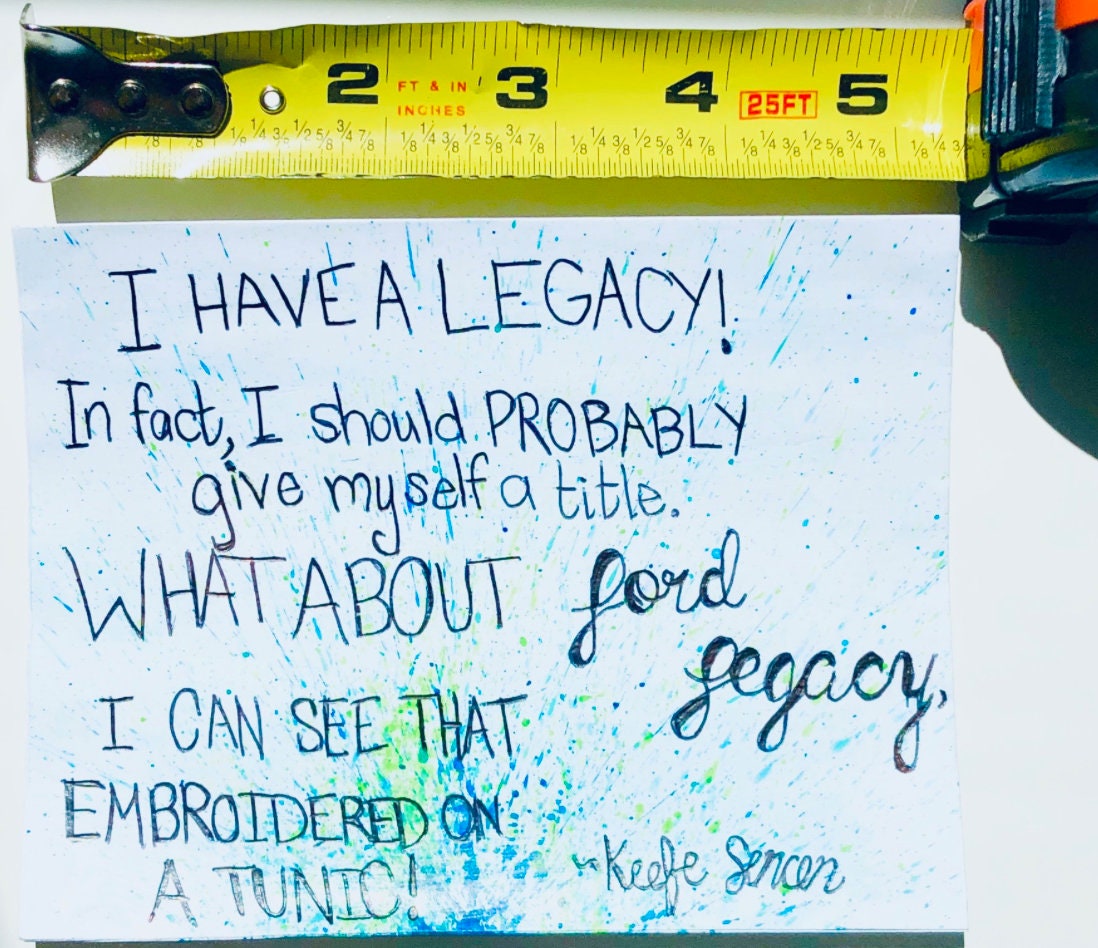 2 FT & IN 3 4 25FT 5
INCHES
7/8 1/8 1/4 3/8 1/2 5/8 3/4 7/8 1/8 1/4 3/8 1/2 5/8 3/4 7/8 1/8 1/4 3/8 1/2 5/8 3/4 7/8 1/8 1/4 3/8 1/2 5/8 3/4 7/8 1/8 1/4
I HAVE A LEGACY!
In fact, I should PROBABLY
give myself a title.
WHAT ABOUT Lord
Legacy,
I CAN SEE THAT
EMBROIDERED ON
A TUNIC!
~Keefe Sencen